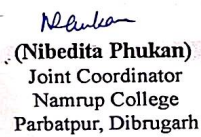 (Nibedita Phukan)
Joint Coordinator
Namrup College
Parbatpur, Dibrugarh